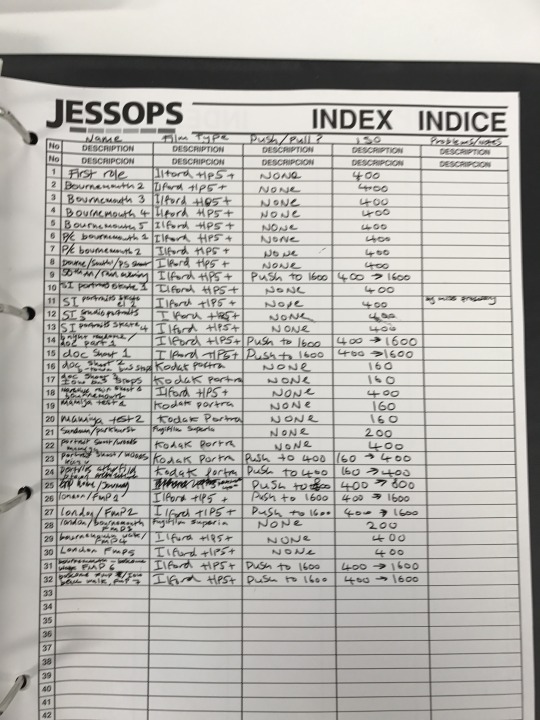 JESSOPS INDEX INDICE
Name Film Type Push/Pull? ISO Problems/notes
No DESCRIPTION DESCRIPTION DESCRIPTION DESCRIPTION DESCRIPTION
No DESCRIPCION DESCRIPCION DESCRIPCION DESCRIPCION DESCRIPCION
1 First role Ilford HP5+ NONE 400
2 Bournemouth 2 Ilford HP5+ NONE 400
3 Bournemouth 3 Ilford HP5+ NONE 400
4 Bournemouth 4 Ilford HP5+ NONE 400
5 Bournemouth 5 Ilford HP5+ NONE 400
6 P/C bournemouth 1 Ilford HP5+ NONE 400
7 P/C bournemouth 2 Ilford HP5+ NONE 400
8 Ilford HP5+ NONE 400
9 Ilford HP5+ Push to 1600 400 → 1600
10 SI portraits skate 1 Ilford HP5+ NONE 400
11 SI portraits skate 2 Ilford HP5+ NONE 400
12 SI studio portraits 3 Ilford HP5+ NONE 400
13 SI portraits skate 4 Ilford HP5+ NONE 400
14 doc part 1 Ilford HP5+ Push to 1600 400 → 1600
15 doc shoot 1 Ilford HP5+ Push to 1600 400 → 1600
16 doc shoot 2 bus stops Kodak Portra NONE 160
17 doc shoot 3 bus stops Kodak Portra NONE 160
18 bournemouth Ilford HP5+ NONE 400
19 Mamiya test 2 Kodak portra NONE 160
20 Mamiya test 2 Kodak Portra NONE 160
21 Sandown/parkhurst Fujifilm Superia NONE 200
22 portrait shoot/woods Kodak Portra NONE 400
23 portrait shoot/woods Kodak Portra Push to 400 160 → 400
24 Kodak Portra Push to 400 160 → 400
25 Push to 400 → 800
26 london/FMP 1 Ilford HP5+ Push to 1600 400 → 1600
27 london/FMP2 Ilford HP5+ Push to 1600 400 → 1600
28 london/bournemouth FMP3 Fujifilm Superia NONE 200
29 bournemouth walk/ FMP4 Ilford HP5+ NONE 400
30 London FMP5 Ilford HP5+ NONE 400
31 bournemouth FMP 6 Ilford HP5+ Push to 1600 400 → 1600
32 Ilford HP5+ Push to 1600 400 → 1600
33
34
35
36
37
38
39
40
41
42